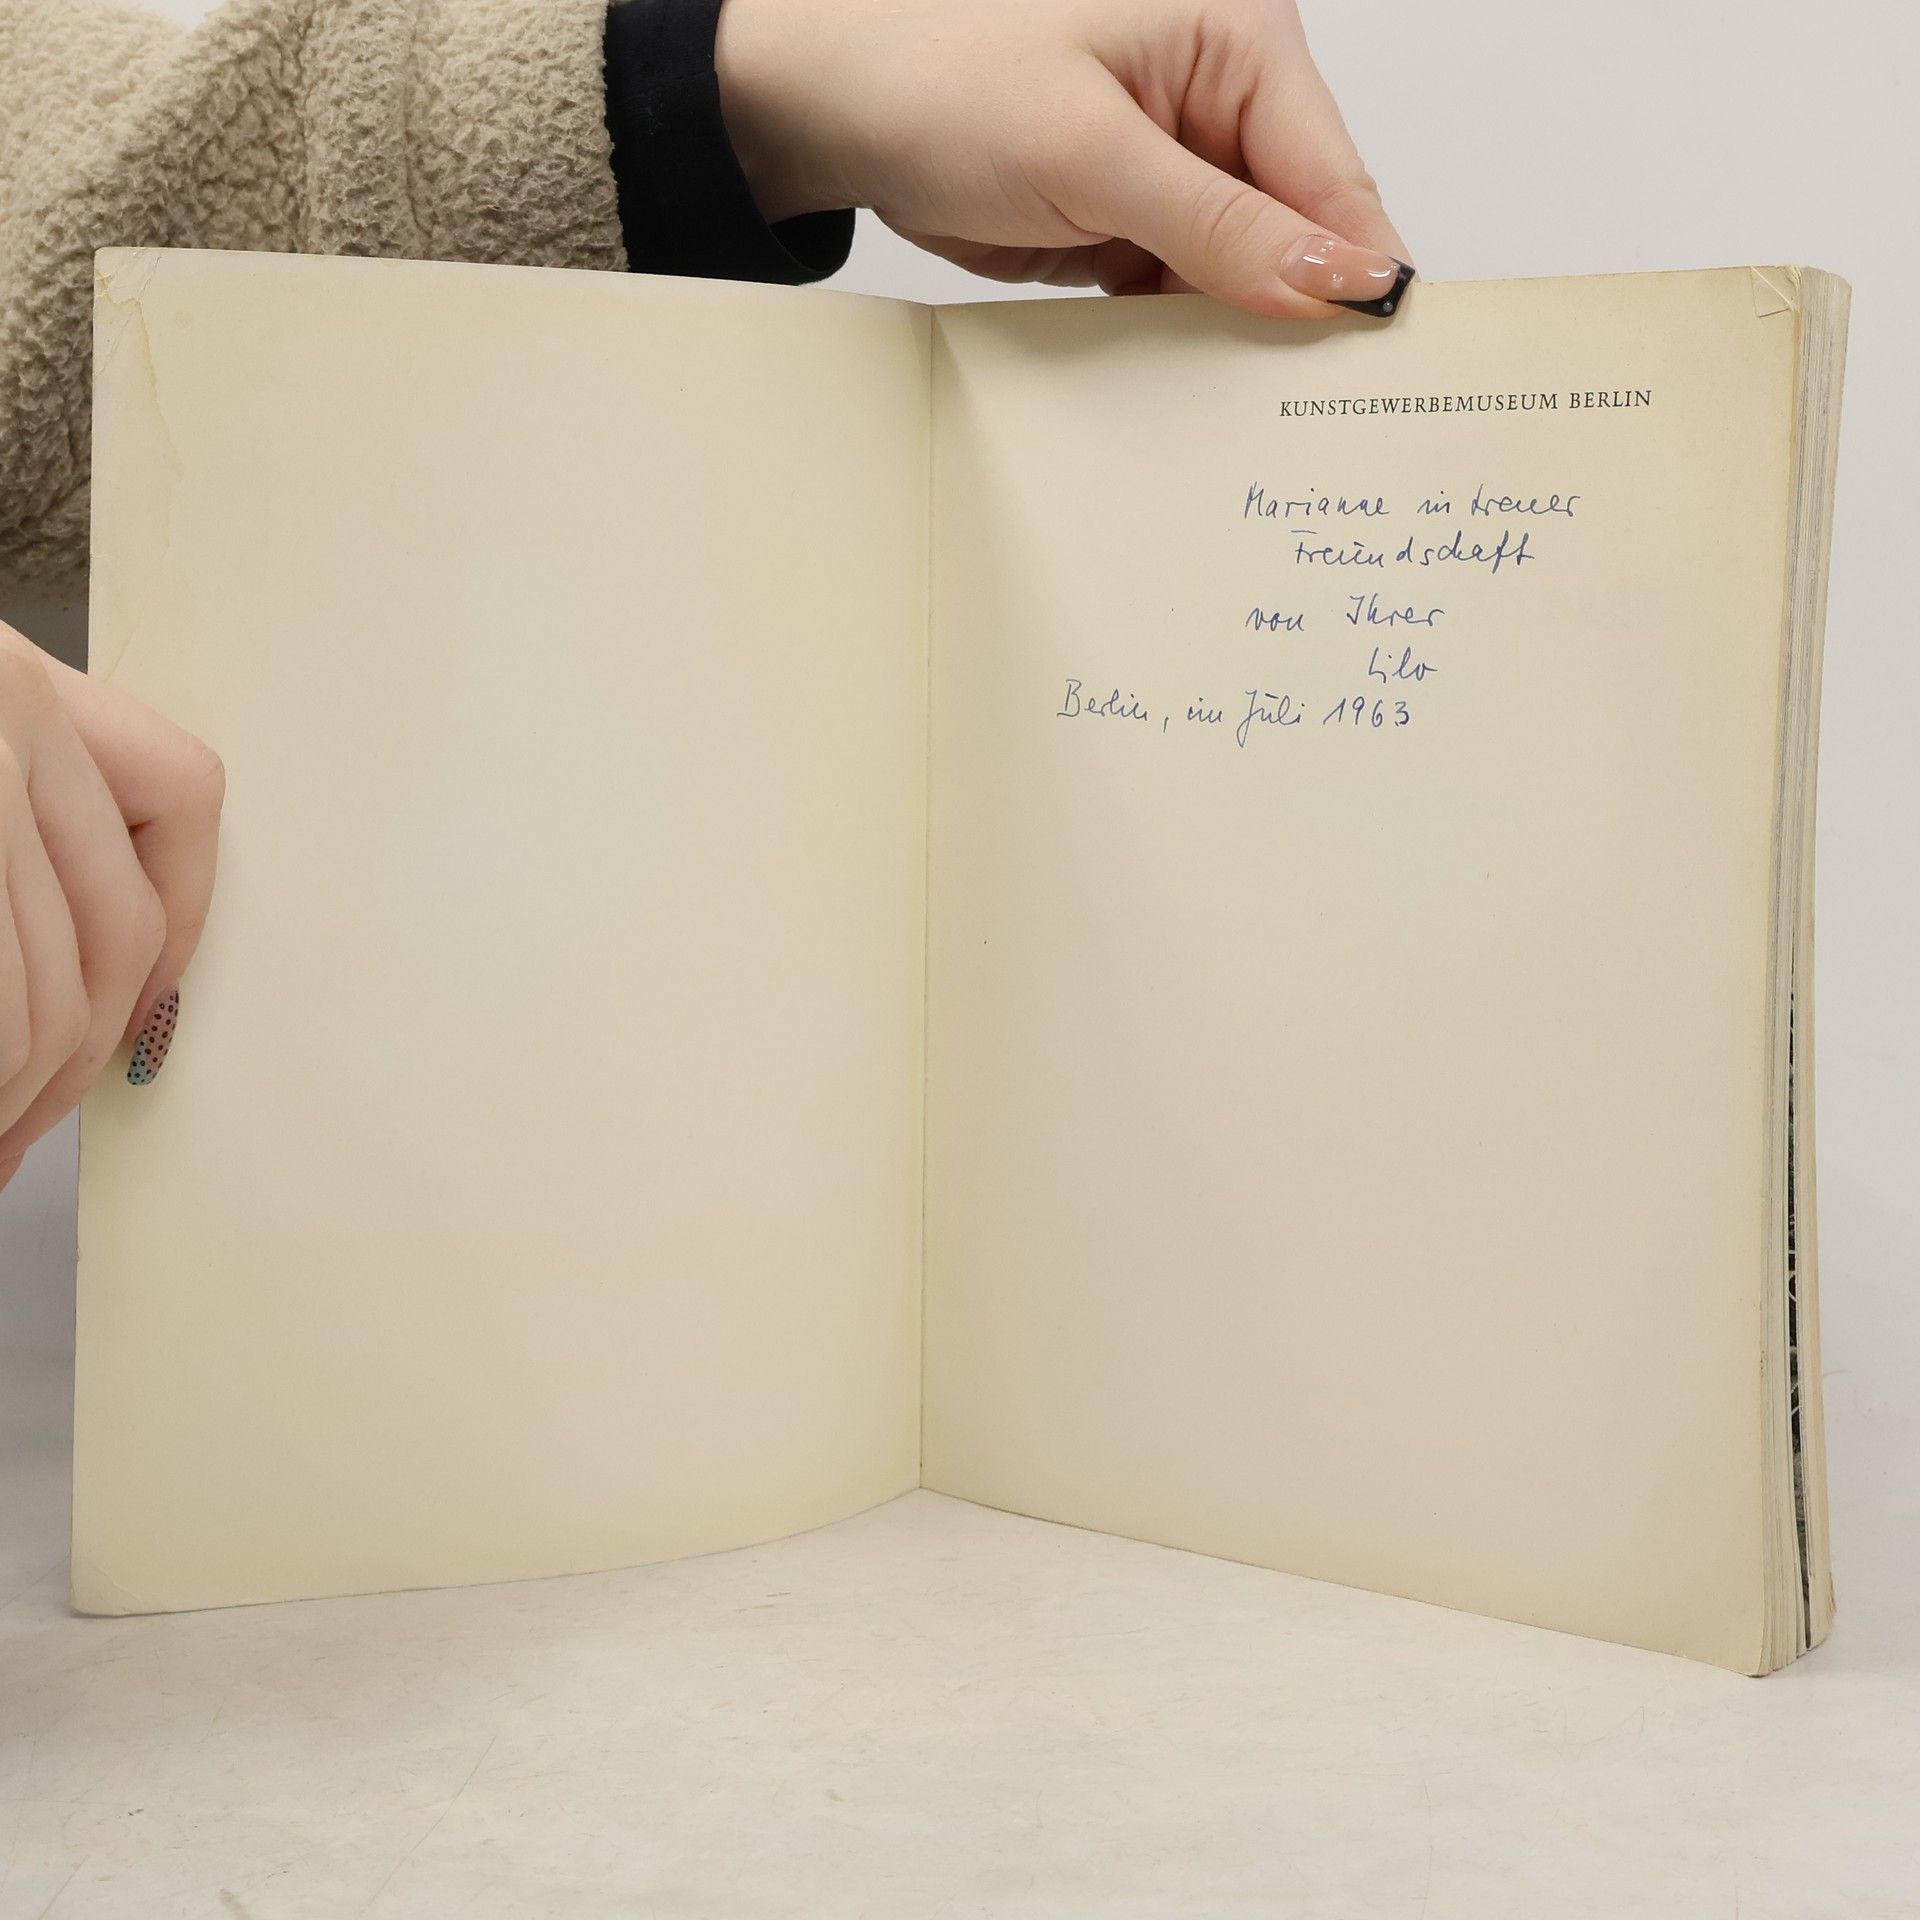 KUNSTGEWERBEMUSEUM BERLIN
Marianne in treuer
Freundschaft
von Ihrer
Lilo
Berlin, im Juli 1963